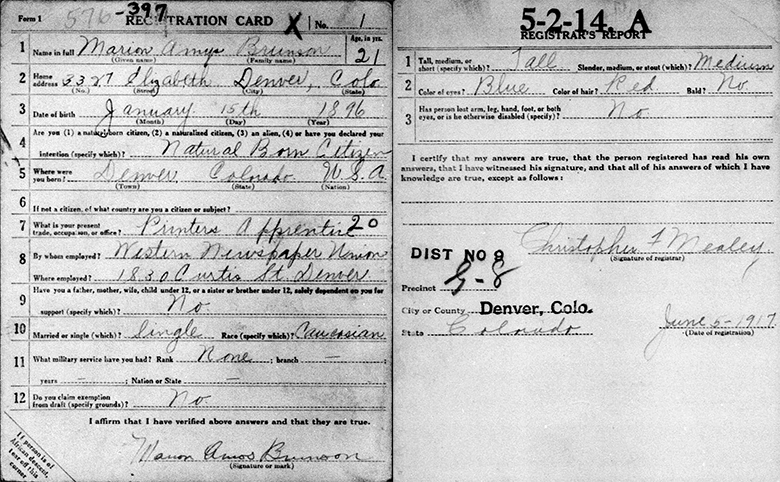 Form 1 576-397 REGISTRATION CARD X No. 1
1 Name in full Marion Amos Brunson Age, in yrs. 21
(Given name) (Family name)
2 Home address 3327 Elizabeth Denver, Colo
(No.) (Street) (City) (State)
3 Date of birth January 15th 1896
(Month) (Day) (Year)
4 Are you (1) a natural-born citizen, (2) a naturalized citizen, (3) an alien, (4) or have you declared your
intention (specify which)? Natural Born Citizen
5 Where were you born? Denver Colorado U.S.A
(Town) (State) (Nation)
6 If not a citizen, of what country are you a citizen or subject?
7 What is your present trade, occupation, or office? Printers Apprentice 20
8 By whom employed? Western Newspaper Union
Where employed? 1830 Curtis St. Denver
9 Have you a father, mother, wife, child under 12, or a sister or brother under 12, solely dependent on you for
support (specify which)? No
10 Married or single (which)? Single Race (specify which)? Caucasian
11 What military service have you had? Rank None ; branch –
years – ; Nation or State –
12 Do you claim exemption from draft (specify grounds)? No.
I affirm that I have verified above answers and that they are true.
Marion Amos Brunson
(Signature or mark)
If person is of
African descent,
tear off this
corner
5-2-14. A
REGISTRAR'S REPORT
1 Tall, medium, or short (specify which)? Tall Slender, medium, or stout (which)? Medium
2 Color of eyes? Blue Color of hair? Red Bald? No
3 Has person lost arm, leg, hand, foot, or both
eyes, or is he otherwise disabled (specify)? No
I certify that my answers are true, that the person registered has read his own
answers, that I have witnessed his signature, and that all of his answers of which I
have knowledge are true, except as follows:
Christopher F Mealey
(Signature of registrar)
DIST NO 9
Precinct G-8
City or County Denver, Colo.
State Colorado June 5-1917
(Date of registration)